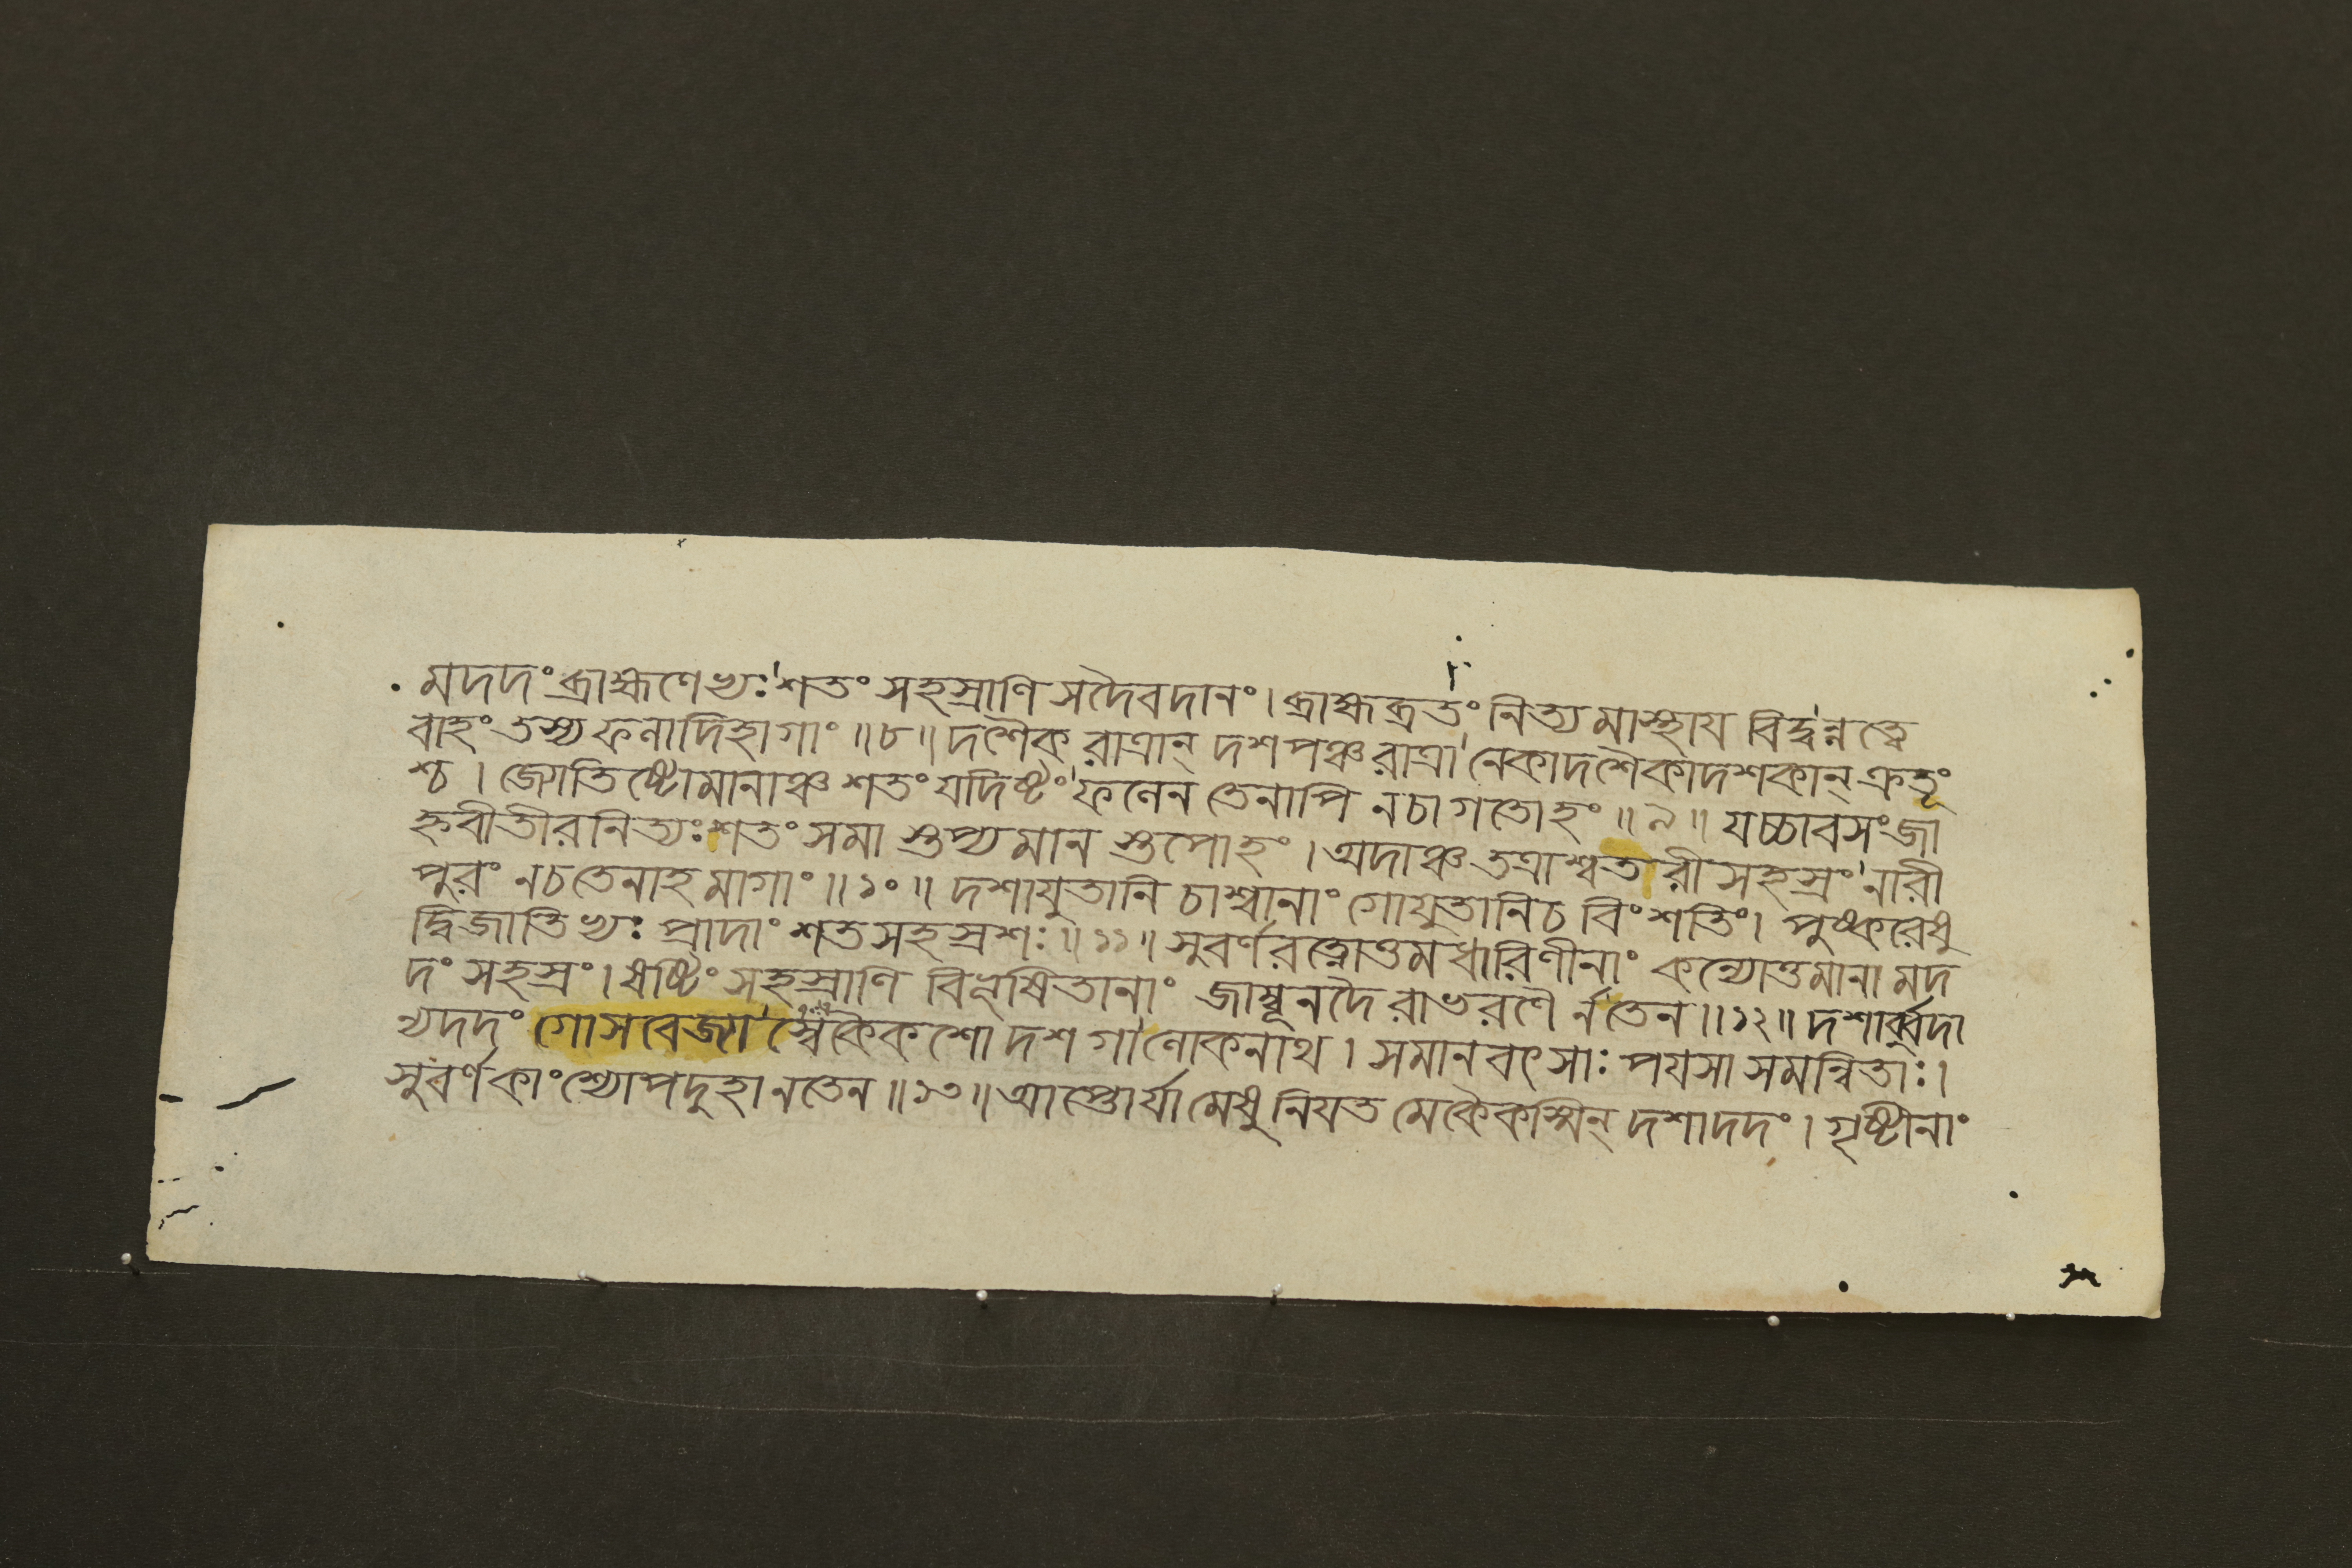 মদদং ব্রাহ্মণেভ্যঃ শতং সহস্রাণি সদৈবদানং। ব্রাহ্মব্রতং নিত্যমাস্থায বিদ্বন্নত্বে
বাহং তস্য ফলাদিহাগাং ॥৮॥ দশৈকরাত্রান্ দশপঞ্চরাত্রানেকাদশৈকাদশকান্ ক্রতূং
শ্চ। জ্যোতিষ্টোমানাঞ্চ শতং যদিষ্টং ফলেন তেনাপি নচাগতোহং ॥৯॥ যচ্চাবসংজা
হ্নবীতীরনিত্যঃ শতং সমা স্তপ্যমান স্তপোহং। অদাঞ্চ তত্রাশ্বতরীসহস্রং নারী
পুরং নচতেনাহমাগাং ॥১০॥ দশাযুতানি চাশ্বানাং গোযুতানিচ বিংশতিং। পুষ্করেষু
দ্বিজাতিভ্যঃ প্রাদাং শতসহস্রশঃ ॥১১॥ সুবর্ণরত্নোত্তমধারিণীনাং কন্যোত্তমানামদ
দং সহস্রং। ষষ্টিং সহস্রাণি বিভূষিতানাং জাম্বূনদৈরাভরণৈর্নতেন ॥১২॥ দশার্ব্বুদা
ন্যদদং গোসবেজ্যাস্বেকৈকশো দশ গালোকনাথ। সমানবৎসাঃ পযসা সমন্বিতাঃ।
সুবর্ণকাংশ্যোপদুহা নতেন ॥১৩॥ আপ্তোর্যামেষু নিযতমেকৈকস্মিন্ দশাদদং। গৃষ্টীনাং